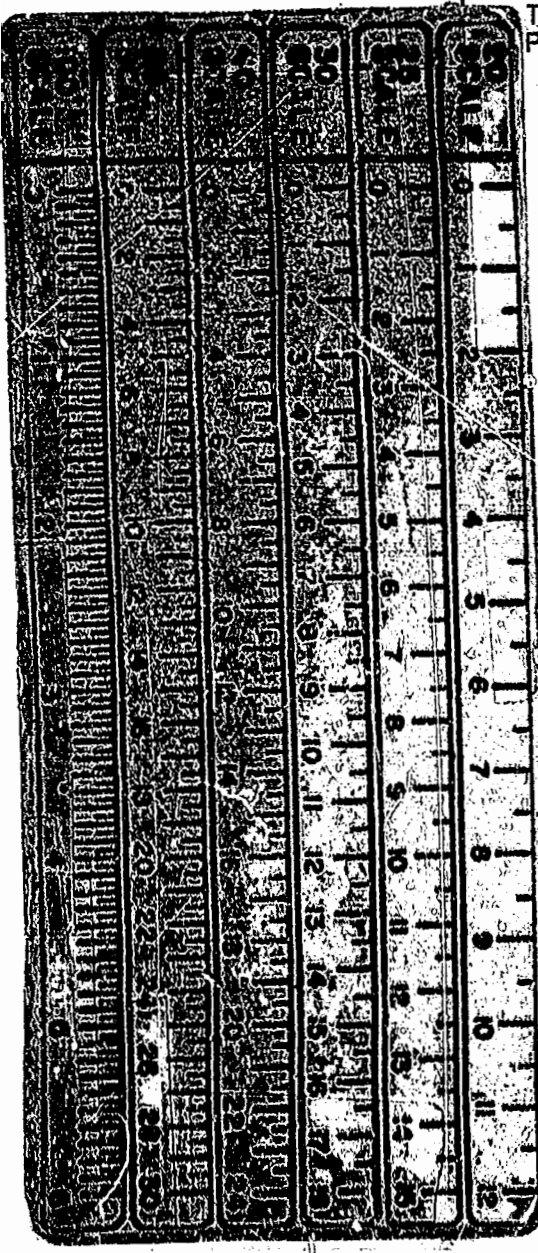 T
P
20 SCALE
0 1 2 3 4 5 6 7 8 9 10 11 12
25 SCALE
0 1 2 3 4 5 6 7 8 9 10 11 12 13 14 15
30 SCALE
0 1 2 3 4 5 6 7 8 9 10 11 12 13 14 15 16 17 18
40 SCALE
0 2 4 6 8 10 12 14 16 18 20 22 24
SCALE
0 2 4 6 8 10 12 14 16 18 20 22 24 26 28 30
SCALE
0 1 2 3 4 5 6